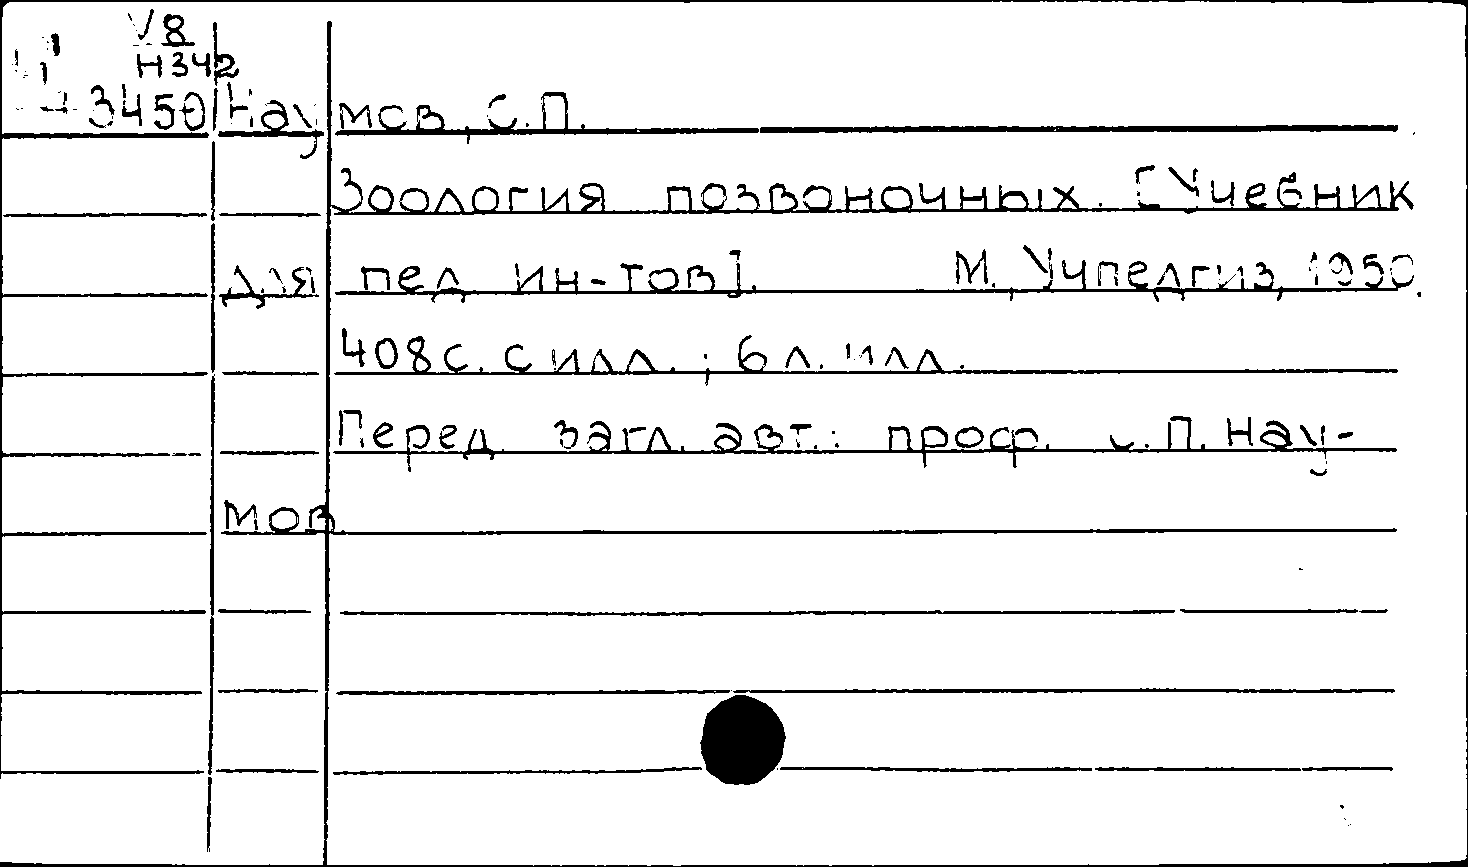 V8
Н342
3450 Наумов, С.П.
Зоология позвоночных. [Учебник
для пед. ин-тов]. М., Учпедгиз, 1950.
408 с. с илл.; 6 л. илл.
Перед загл. авт.: проф. С.П. Нау-
мов.